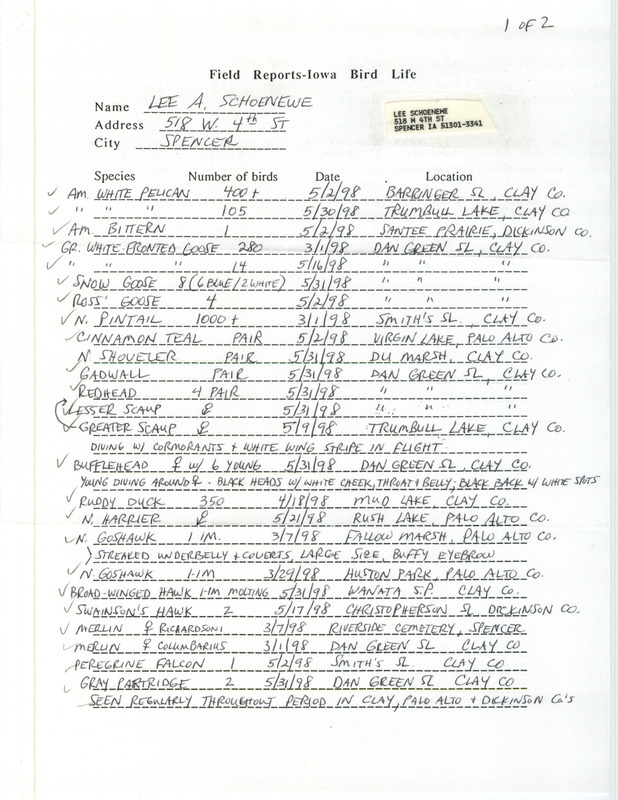 1 OF 2
Field Reports-Iowa Bird Life
Name LEE A. SCHOENEWE
Address 518 W. 4th ST
City SPENCER
LEE SCHOENEWE
518 W 4TH ST
SPENCER IA 51301-3341
Species Number of birds Date Location
✓ Am. WHITE PELICAN 400+ 5/2/98 BARRINGER SL, CLAY CO.
✓ " " " 105 5/30/98 TRUMBULL LAKE, CLAY CO
✓ Am. BITTERN 1 5/2/98 SANTEE PRAIRIE, DICKINSON CO.
✓ GR. WHITE-FRONTED GOOSE 280 3/1/98 DAN GREEN SL, CLAY CO.
✓ " " " 14 5/16/98 " " "
✓ SNOW GOOSE 8 (6 BLUE/2 WHITE) 5/31/98 " " "
✓ ROSS' GOOSE 4 5/2/98 " " "
✓ N. PINTAIL 1000+ 3/1/98 SMITH'S SL, CLAY CO.
✓ CINNAMON TEAL PAIR 5/2/98 VIRGIN LAKE, PALO ALTO CO.
✓ N. SHOVELER PAIR 5/31/98 DU MARSH, CLAY CO.
✓ GADWALL PAIR 5/31/98 DAN GREEN SL, CLAY CO.
✓ REDHEAD 4 PAIR 5/31/98 " " "
✓ LESSER SCAUP ♀ 5/31/98 " " "
✓ GREATER SCAUP ♀ 5/9/98 TRUMBULL LAKE, CLAY CO.
DIVING W/ CORMORANTS + WHITE WING STRIPE IN FLIGHT
✓ BUFFLEHEAD ♀ W/ 6 YOUNG 5/31/98 DAN GREEN SL, CLAY CO.
YOUNG DIVING AROUND ♀ - BLACK HEADS W/ WHITE CHEEK, THROAT + BELLY; BLACK BACK W/ WHITE SPOTS
✓ RUDDY DUCK 350 4/18/98 MUD LAKE, CLAY CO.
✓ N. HARRIER ♀ 5/21/98 RUSH LAKE, PALO ALTO CO.
✓ N. GOSHAWK 1 IM. 3/7/98 FALLOW MARSH, PALO ALTO CO.
STREAKED UNDERBELLY + COVERTS, LARGE SIZE, BUFFY EYEBROW
✓ N. GOSHAWK 1-IM 3/29/98 HUSTON PARK, PALO ALTO CO.
✓ BROAD-WINGED HAWK 1-IM MOLTING 5/31/98 WANATA S.P. CLAY CO.
✓ SWAINSON'S HAWK 2 5/17/98 CHRISTOPHERSON SL DICKINSON CO.
✓ MERLIN ♀ RICHARDSONI 3/7/98 RIVERSIDE CEMETERY, SPENCER
✓ MERLIN ♀ COLUMBARIUS 3/1/98 DAN GREEN SL CLAY CO
✓ PEREGRINE FALCON 1 5/2/98 SMITH'S SL CLAY CO
✓ GRAY PARTRIDGE 2 5/31/98 DAN GREEN SL CLAY CO
SEEN REGULARLY THROUGHOUT PERIOD IN CLAY, PALO ALTO + DICKINSON CO'S